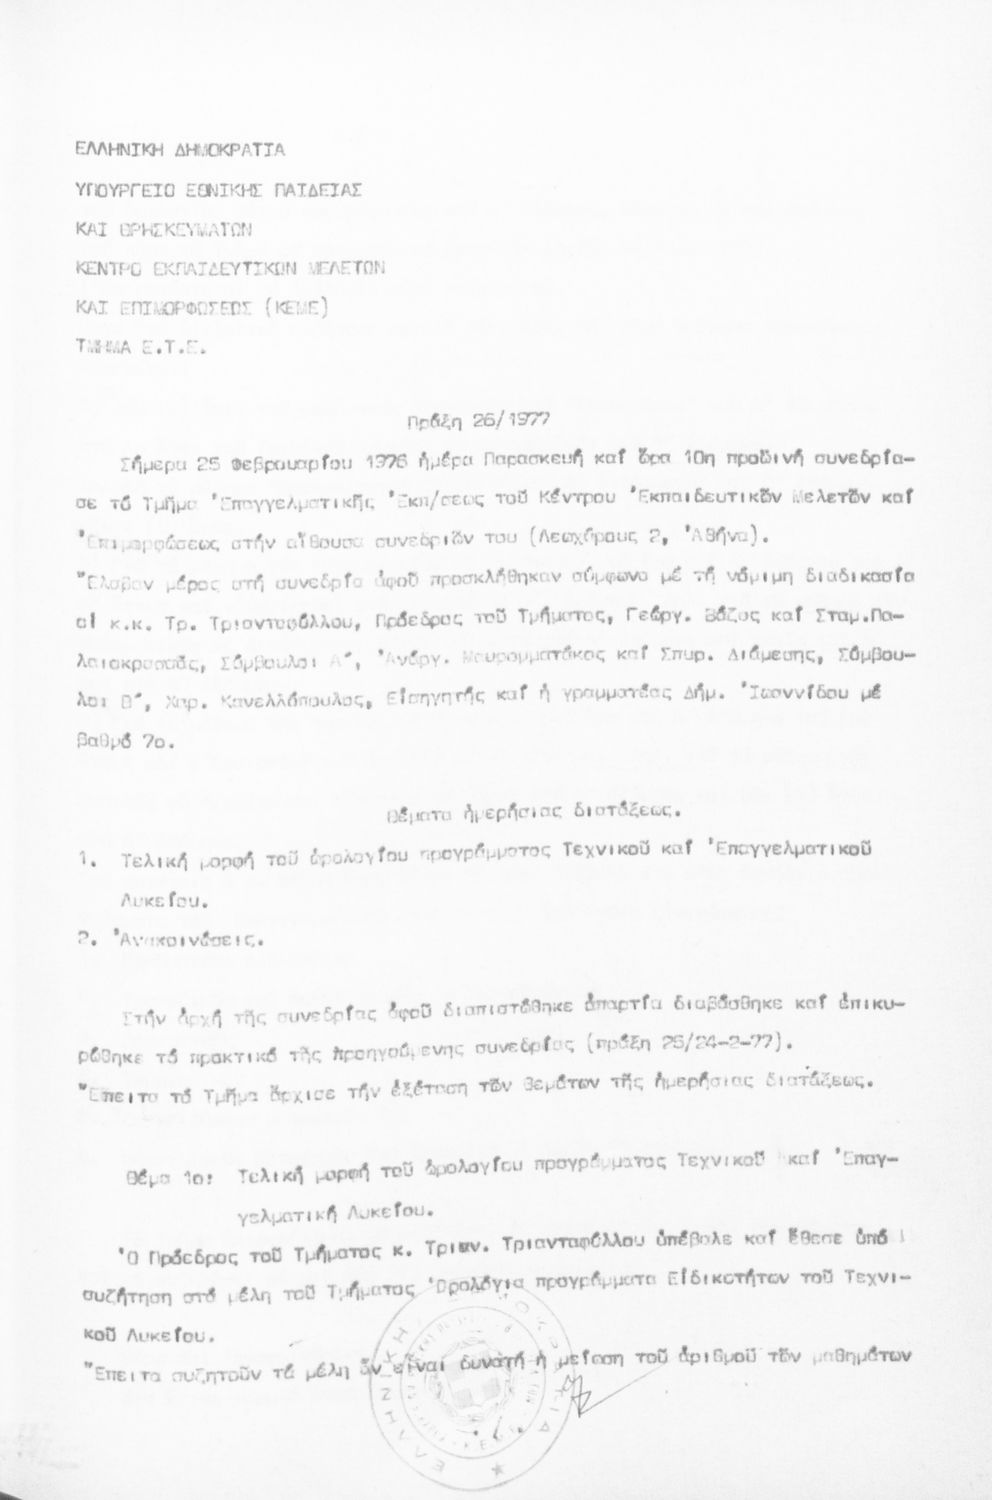 ΕΛΛΗΝΙΚΗ ΔΗΜΟΚΡΑΤΙΑ
ΥΠΟΥΡΓΕΙΟ ΕΘΝΙΚΗΣ ΠΑΙΔΕΙΑΣ
ΚΑΙ ΘΡΗΣΚΕΥΜΑΤΩΝ
ΚΕΝΤΡΟ ΕΚΠΑΙΔΕΥΤΙΚΩΝ ΜΕΛΕΤΩΝ
ΚΑΙ ΕΠΙΜΟΡΦΩΣΕΩΣ (ΚΕΜΕ)
ΤΜΗΜΑ Ε.Τ.Ε.
Πράξη 26/1977
Σήμερα 25 Φεβρουαρίου 1976 ἡμέρα Παρασκευή καί ὥρα 10η πρωϊνή συνεδρία-
σε τό Τμῆμα Ἐπαγγελματικῆς Ἐκπ/σεως τοῦ Κέντρου Ἐκπαιδευτικῶν Μελετῶν καί
Ἐπιμορφώσεως στήν αἴθουσα συνεδριῶν του (Λεωχάρους 2, Ἀθήνα).
Ἔλαβαν μέρος στή συνεδρία ἀφοῦ προσκλήθηκαν σύμφωνα μέ τή νόμιμη διαδικασία
οἱ κ.κ. Τρ. Τριανταφύλλου, Πρόεδρος τοῦ Τμήματος, Γεώργ. Βάζος καί Σταμ.Πα-
λαιοκρασσάς, Σύμβουλοι Α΄, Ἀνάργ. Μαυρομματάκος καί Σπυρ. Διάμεσης, Σύμβου-
λοι Β΄, Χαρ. Κανελλόπουλος, Εἰσηγητής καί ἡ γραμματέας Δήμ. Ἰωαννίδου μέ
βαθμό 7ο.
Θέματα ἡμερήσιας διατάξεως.
1. Τελική μορφή τοῦ ὡρολογίου προγράμματος Τεχνικοῦ καί Ἐπαγγελματικοῦ
Λυκείου.
2. Ἀνακοινώσεις.
Στήν ἀρχή τῆς συνεδρίας ἀφοῦ διαπιστώθηκε ἀπαρτία διαβάσθηκε καί ἐπικυ-
ρώθηκε τό πρακτικό τῆς προηγούμενης συνεδρίας (πράξη 25/24-2-77).
Ἔπειτα τό Τμῆμα ἄρχισε τήν ἐξέταση τῶν θεμάτων τῆς ἡμερήσιας διατάξεως.
Θέμα 1ο: Τελική μορφή τοῦ ὡρολογίου προγράμματος Τεχνικοῦ καί Ἐπαγ-
γελματική Λυκείου.
Ὁ Πρόεδρος τοῦ Τμήματος κ. Τριαν. Τριανταφύλλου ὑπέβαλε καί ἔθεσε ὑπό
συζήτηση στά μέλη τοῦ Τμήματος Ὡρολόγια προγράμματα Εἰδικοτήτων τοῦ Τεχνι-
κοῦ Λυκείου.
Ἔπειτα συζητοῦν τά μέλη ἄν εἶναι δυνατή ἡ μείωση τοῦ ἀριθμοῦ τῶν μαθημάτων
ΕΛΛΗΝΙΚΗ ΔΗΜΟΚΡΑΤΙΑ